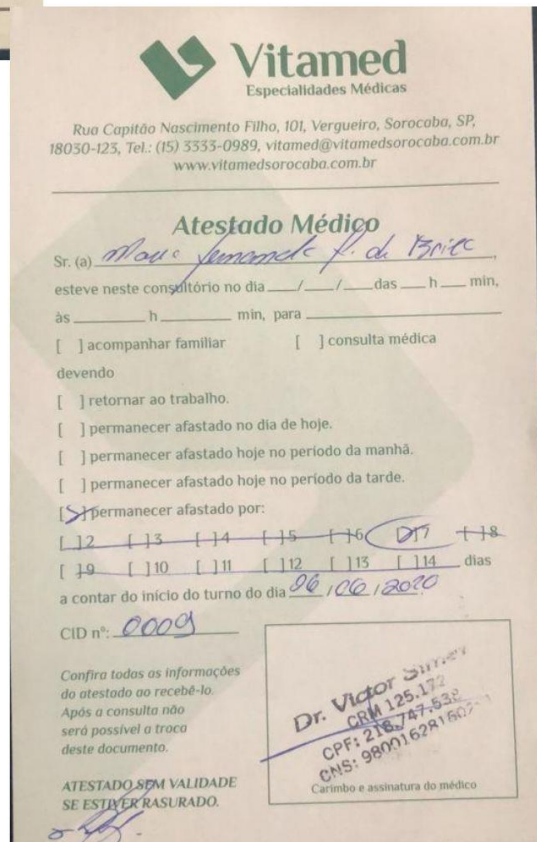 Vitamed
Especialidades Médicas
Rua Capitão Nascimento Filho, 101, Vergueiro, Sorocaba, SP,
18030-123, Tel.: (15) 3333-0989, vitamed@vitamedsorocaba.com.br
www.vitamedsorocaba.com.br
Atestado Médico
Sr. (a)
esteve neste consultório no dia ___/___/___das ___ h ___ min,
às ______ h ______ min, para ______
[ ] acompanhar familiar [ ] consulta médica
devendo
[ ] retornar ao trabalho.
[ ] permanecer afastado no dia de hoje.
[ ] permanecer afastado hoje no período da manhã.
[ ] permanecer afastado hoje no período da tarde.
[X] permanecer afastado por:
[ ]2 [ ]3 [ ]4 [ ]5 [ ]6 [X]7 [ ]8
[ ]9 [ ]10 [ ]11 [ ]12 [ ]13 [ ]14 dias
a contar do início do turno do dia 06/06/2020
CID nº:
Confira todas as informações
do atestado ao recebê-lo.
Após a consulta não
será possível a troca
deste documento.
ATESTADO SEM VALIDADE
SE ESTIVER RASURADO.
Dr. Victor
CRM 125.172
CPF: 218.747.538
CNS:
Carimbo e assinatura do médico